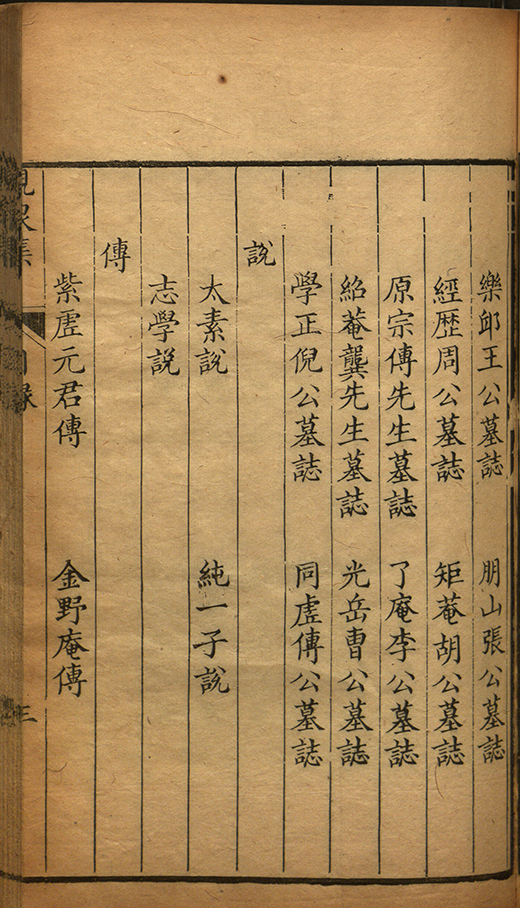 樂邱王公墓誌 朋山張公墓誌
經歷周公墓誌 矩菴胡公墓誌
原宗傅先生墓誌 了庵李公墓誌
紹菴龔先生墓誌 光岳曹公墓誌
學正倪公墓誌 同虛傅公墓誌
說
太素說 純一子說
志學說
傳
紫虛元君傳 金野庵傳
峴泉集
目錄
三